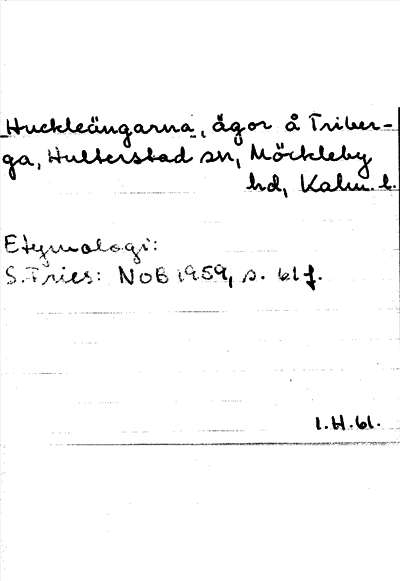 Huckleängarna, ägor å Triber-
ga, Hulterstad sn, Möckleby
hd, Kalm. l.
Etymologi:
S. Fries: NoB 1959, s. 61 f.
I.H. 61.